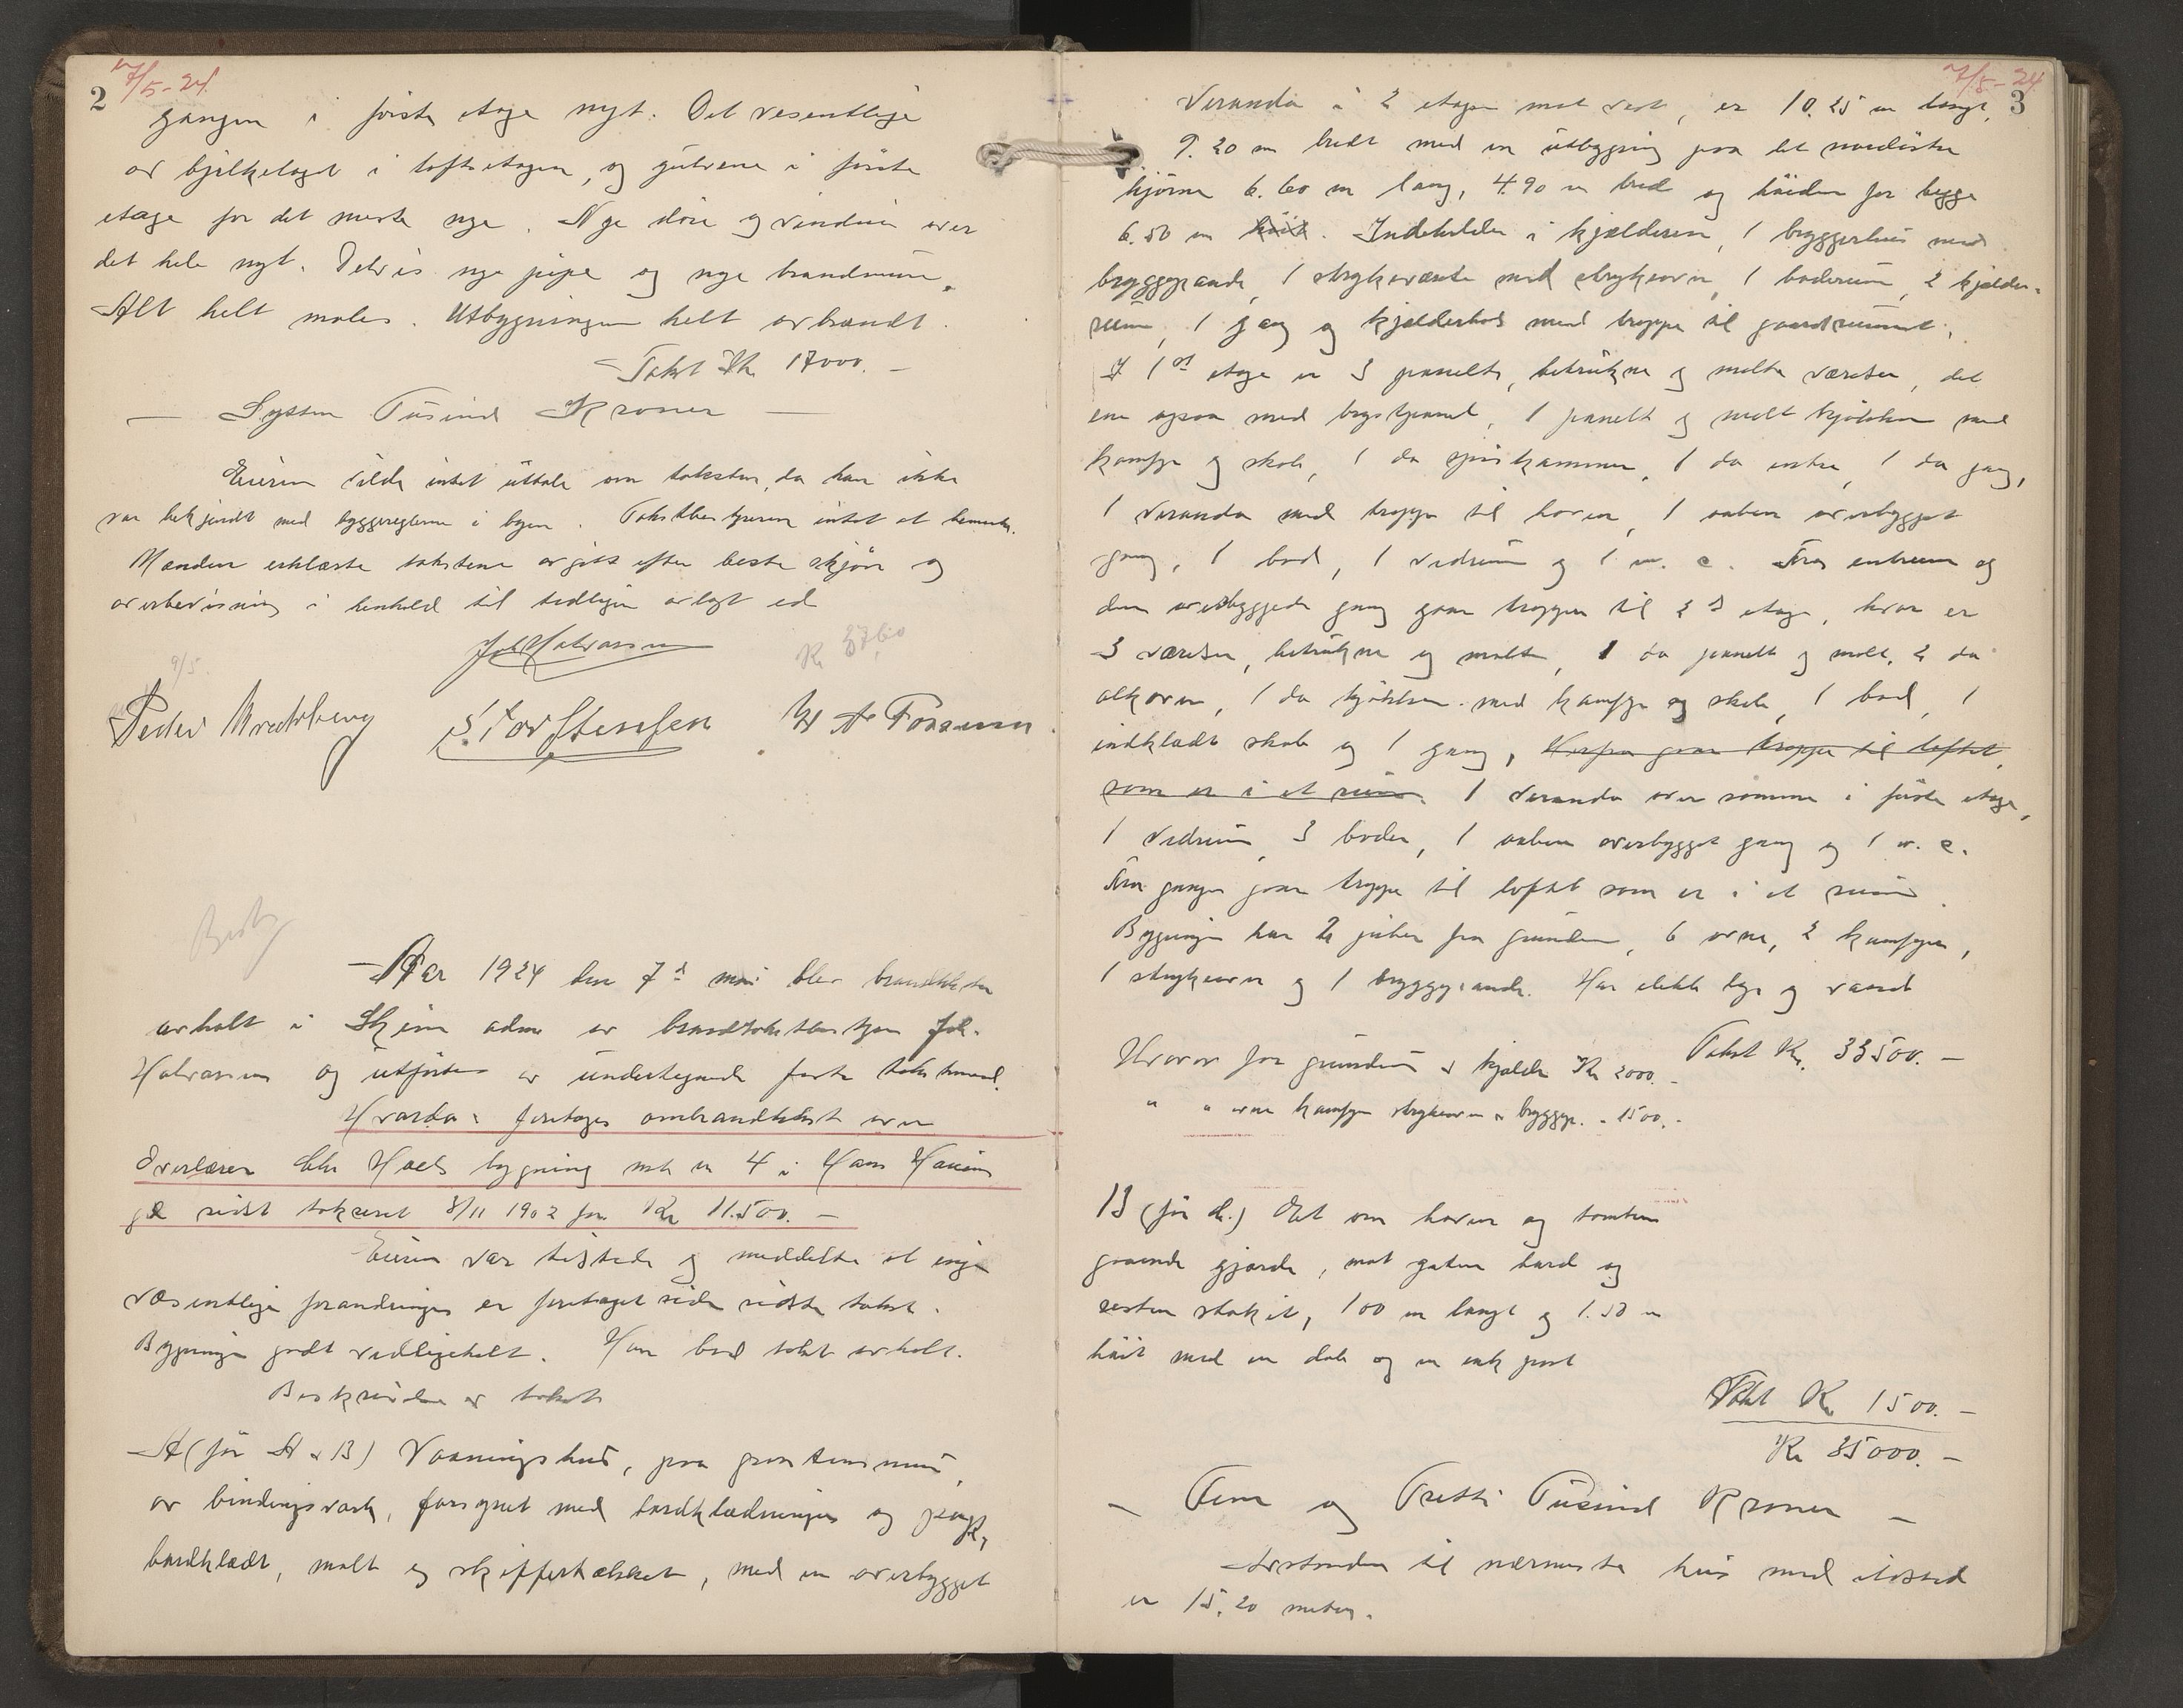 2
7/5-24.
gangen i første etage nyt. Det vesentlige
av bjelkelaget i loftsetagen, og gulvene i første
etage for det meste nye. Nye døre og vinduer over
det hele nyt. Delvis nye piper og nye brandmure.
Alt helt males. Utbygningen helt avbrændt.
Takst Kr. 17000.-
— Sytten Tusind Kroner —
Eieren vilde intet uttale om taksten, da han ikke
var bekjendt med byggereglerne i byen. Takstbestyreren intet at bemerke.
Mændene erklærte taksterne avgitt efter beste skjøn og
overbevisning i henhold til tidligere avlagt ed
Joh Halvorsen
Kr 37,60
9/5.
Peder Bratsberg S. Torstensen
Aar 1924 den 7de mai blev brandtakster
avholt i Skien under av brandtakstbestyrer Joh.
Halvorsen og utførtes av undertegnede faste takstmænd.
Hvorda: foretages ombrandtakst over
Overlærer Chr Hoels bygning matr nr 4 i Hans Houens
gt sidst takseret 3/11 1902 for Kr 11.500.-
Eieren var tilstede og meddelte at ingen
væsentlige forandringer er foretaget siden sidste takst.
Bygningen godt vedlikeholt. Han bad takst avholt.
Beskrivelse og takst
A (før A & B) Vaaningshus, paa graastensmur,
av bindingsverk, forsynet med bordklædninger og papp,
bordklædt, malt og skiffertækket, med en overbygget
7/5-24
3
Veranda i 2 etager mot vest, er 10.25 m langt,
9.20 m bredt med en utbygning paa det nordøstre
hjørne 6.60 m lang, 4.90 m bred og høiden for begge
6.50 m høit. Indeholder i kjælderen, 1 bryggerhus med
bryggepande, 1 strykeværelse med strykeovn, 1 baderum, 2 kjælder-
rum, 1 gang og kjælderbod med trappe til gaardsrummet.
I 1st etage er 3 panelte, betrukne og malte værelser, det
ene ogsaa med brystpanel, 1 panelt og malt kjøkken med
komfyr og skab, 1 do spiskammer, 1 do entre, 1 do gang,
1 Veranda med trappe til haven, 1 aaben overbygget
gang, 1 bod, 1 vedrum og 1 w. c. Fra entreen og
den overbyggede gang gaar trapper til 2d etage, hvor er
3 værelser, betrukne og malte, 1 do panelt og malt, 2 do
alkover, 1 do kjøkken med komfyr og skab, 1 bod, 1
indklædt skab og 1 gang, Herfra gaar trappe til loftet,
som er i et rum. 1 Veranda over samme i første etage,
1 Vedrum, 3 boder, 1 aaben overbygget gang og 1 w. c.
Fra gangen gaar trappe til loftet som er i et rum.
Bygningen har 2 piber fra grunden, 6 ovne, 2 komfyrer,
1 strykeovn og 1 bryggepande. Har elektr lys og vand
Takst Kr. 33500.-
Hvorav for grundmur & kjelder Kr 2000.-
" " ovne komfyrer strykeovn & bryggep. - 1500.-
B (før d.) Det om haven og tomten
gaaende gjærde, mot gaten bord og
resten stakit, 100 m langt og 1.50 m
høit med en dob og en enk port
Takst Kr 1500.-
Kr 35000.-
— Fem og Tretti Tusind Kroner —
Avstanden til nærmeste hus med ildsted
er 15,20 meter.